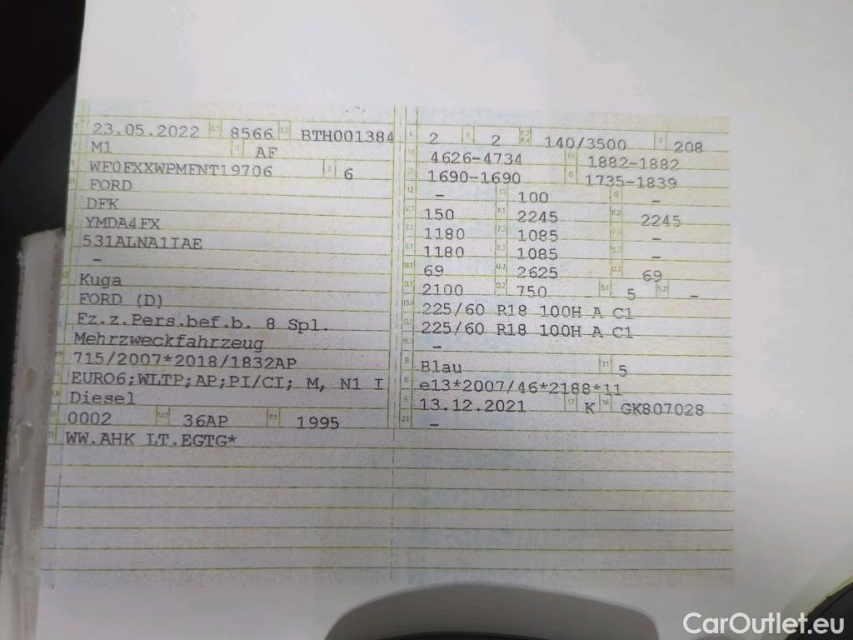 23.05.2022 8566 BTH001384
M1 AF
WF0FXXWPMFNT19706 6
FORD
DFK
YMDA4FX
531ALNA1IAE
–
Kuga
FORD (D)
Fz.z.Pers.bef.b. 8 Spl.
Mehrzweckfahrzeug
715/2007*2018/1832AP
EURO6;WLTP;AP;PI/CI; M, N1 I
Diesel
0002 36AP 1995
WW.AHK LT.EGTG*
2 2 140/3500 208
4626-4734 1882-1882
1690-1690 1735-1839
– 100 –
150 2245 2245
1180 1085 –
1180 1085 –
69 2625 69
2100 750 5 –
225/60 R18 100H A C1
225/60 R18 100H A C1
–
Blau 5
e13*2007/46*2188*11
13.12.2021 K GK807028
–
CarOutlet.eu